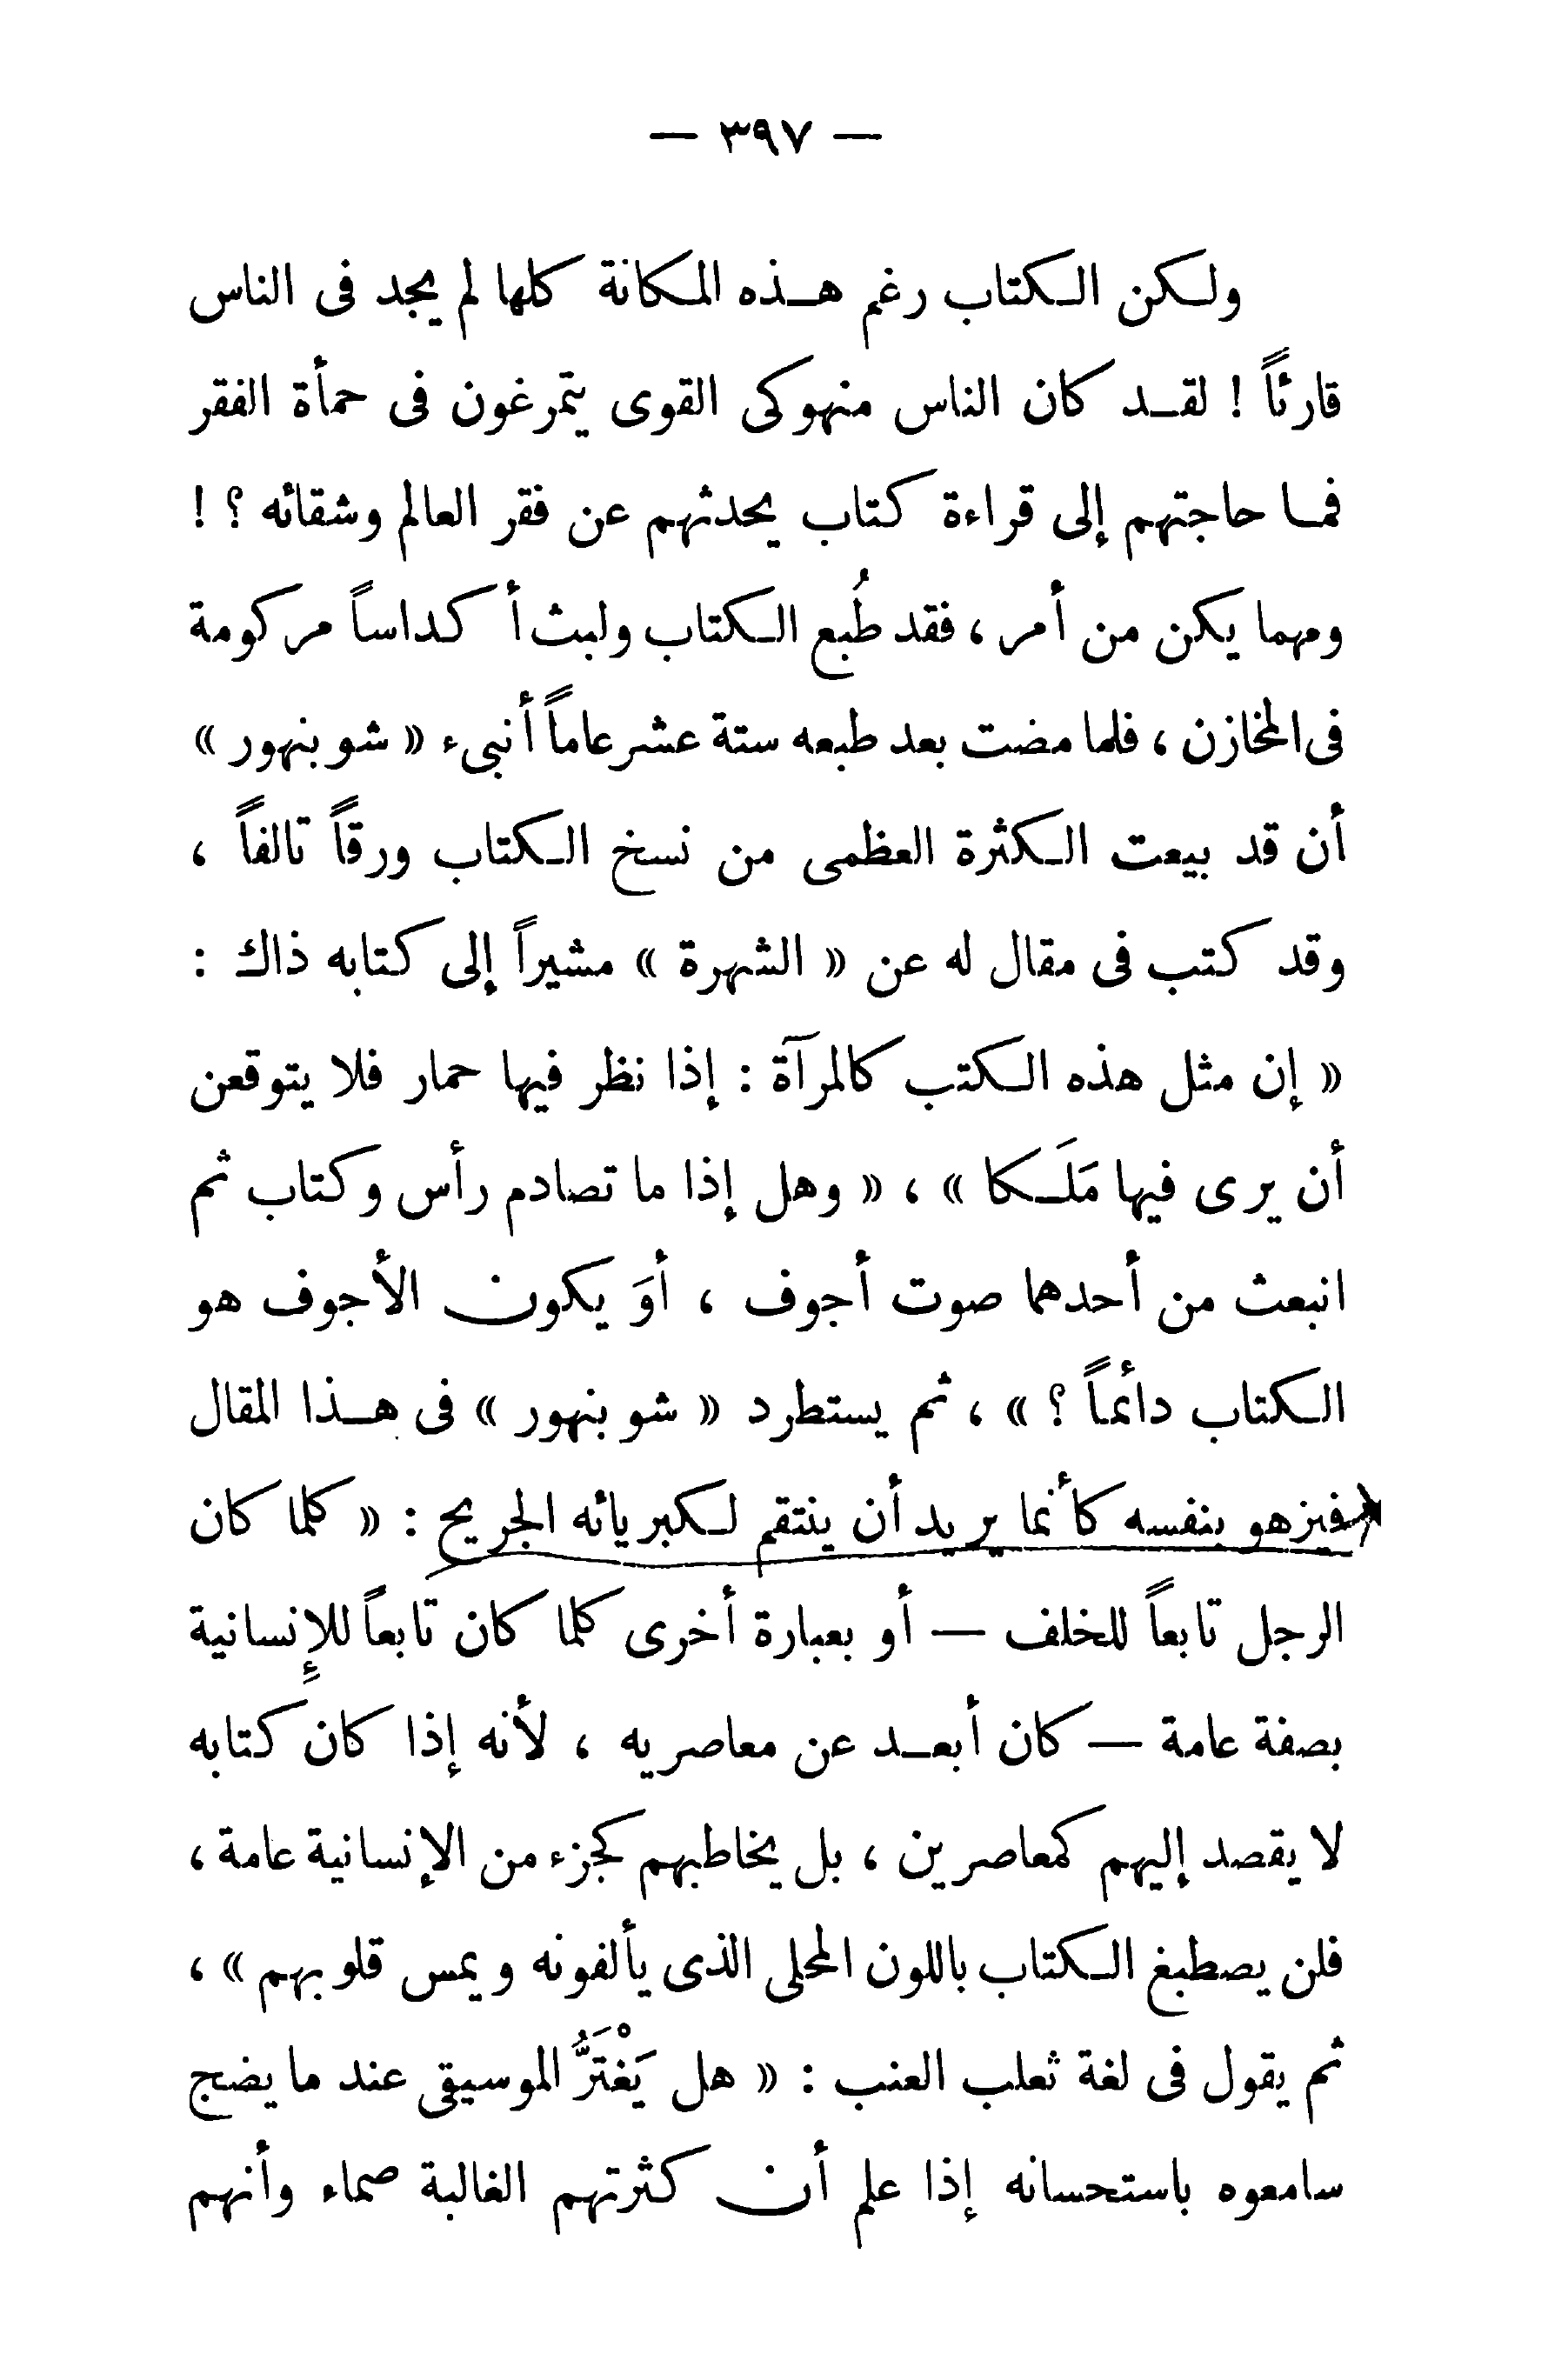 — ٣٩٧ —
ولكن الكتاب رغم هذه المكانة كلها لم يجد فى الناس
قارئاً ! لقد كان الناس منهوكى القوى يتمرغون فى حمأة الفقر
فما حاجتهم إلى قراءة كتاب يحدثهم عن فقر العالم وشقائه ؟ !
ومهما يكن من أمر ، فقد طُبع الكتاب ولبث أكداساً مركومة
فى المخازن ، فلما مضت بعد طبعه ستة عشر عاماً أنبىء « شوبنهور »
أن قد بيعت الكثرة العظمى من نسخ الكتاب ورقاً تالفاً ،
وقد كتب فى مقال له عن « الشهرة » مشيراً إلى كتابه ذاك :
« إن مثل هذه الكتب كالمرآة : إذا نظر فيها حمار فلا يتوقعن
أن يرى فيها مَلَكا » ، « وهل إذا ما تصادم رأس وكتاب ثم
انبعث من أحدهما صوت أجوف ، أوَ يكون الأجوف هو
الكتاب دائماً ؟ » ، ثم يستطرد « شوبنهور » فى هذا المقال
فيزهو بنفسه كأنما يريد أن ينتقم لكبريائه الجريح : « كلما كان
الرجل تابعاً للخلف — أو بعبارة أخرى كلما كان تابعاً للإٍنسانية
بصفة عامة — كان أبعد عن معاصريه ، لأنه إذا كان كتابه
لا يقصد إليهم كمعاصرين ، بل يخاطبهم كجزء من الإنسانية عامة ،
فلن يصطبغ الكتاب باللون المحلى الذى يألفونه ويمس قلوبهم » ،
ثم يقول فى لغة ثعلب العنب : « هل يَغْتَرُّ الموسيقى عند ما يضج
سامعوه باستحسانه إذا علم أن كثرتهم الغالبة صماء وأنهم